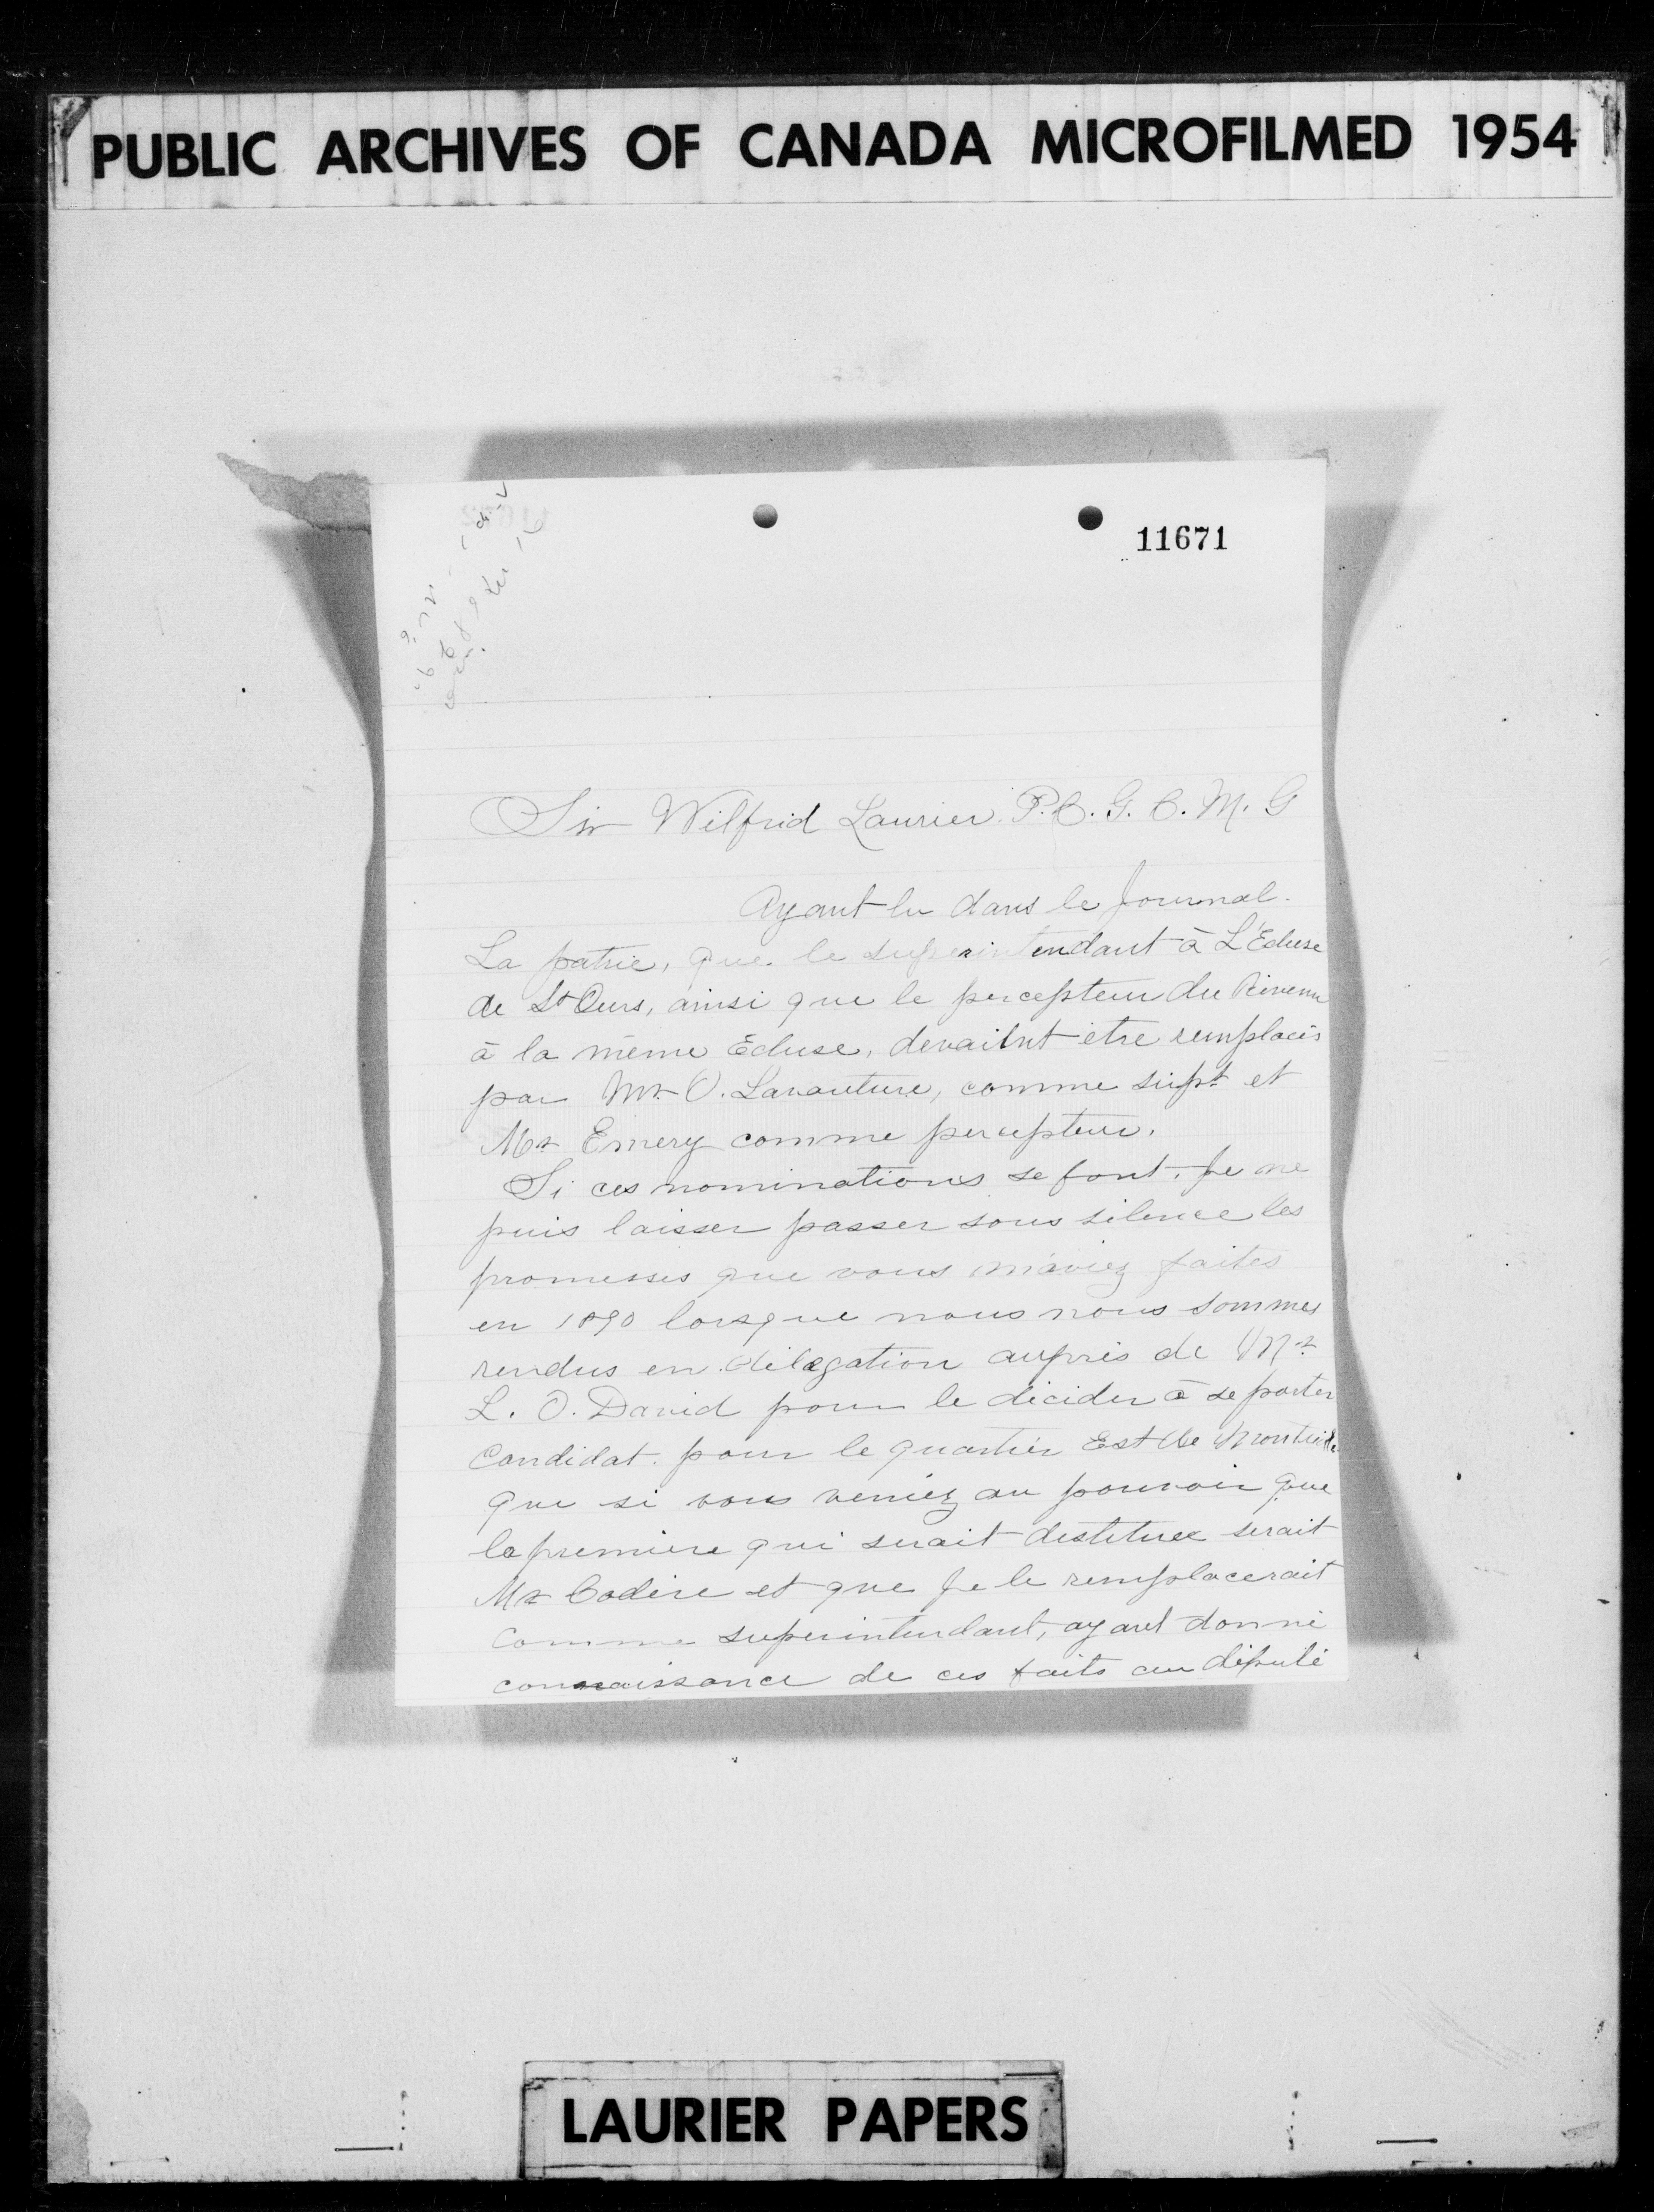 PUBLIC ARCHIVES OF CANADA MICROFILMED 1954
11671
Sir Wilfrid Laurier. P.C. G. C. M. G
Ayant lu dans le Journal.
La patrie, que le superintendant à L'Ecluse
de St Ours, ainsi que le percepteur du Revenu
à la même Écluse, devaient etre remplacés
par Mr. O. Lavouture, comme supt et
Mr Emery comme percepteur.
Si ces nominations se font, Je ne
puis laisser passer sous silence les
promesses que vous m'aviez faites
en 1890 lorsque nous nous sommes
rendus en délégation auprès de Mr
L. O. David pour le décider à se porter
Candidat. pour le quartier Est de
que si vous veniez au pouvoir que
le premiere qui serait destituer serait
Mr Codère et que Je le remplacerait
Comme superintendant, ayant donné
connaissance de ces faits au député
LAURIER PAPERS